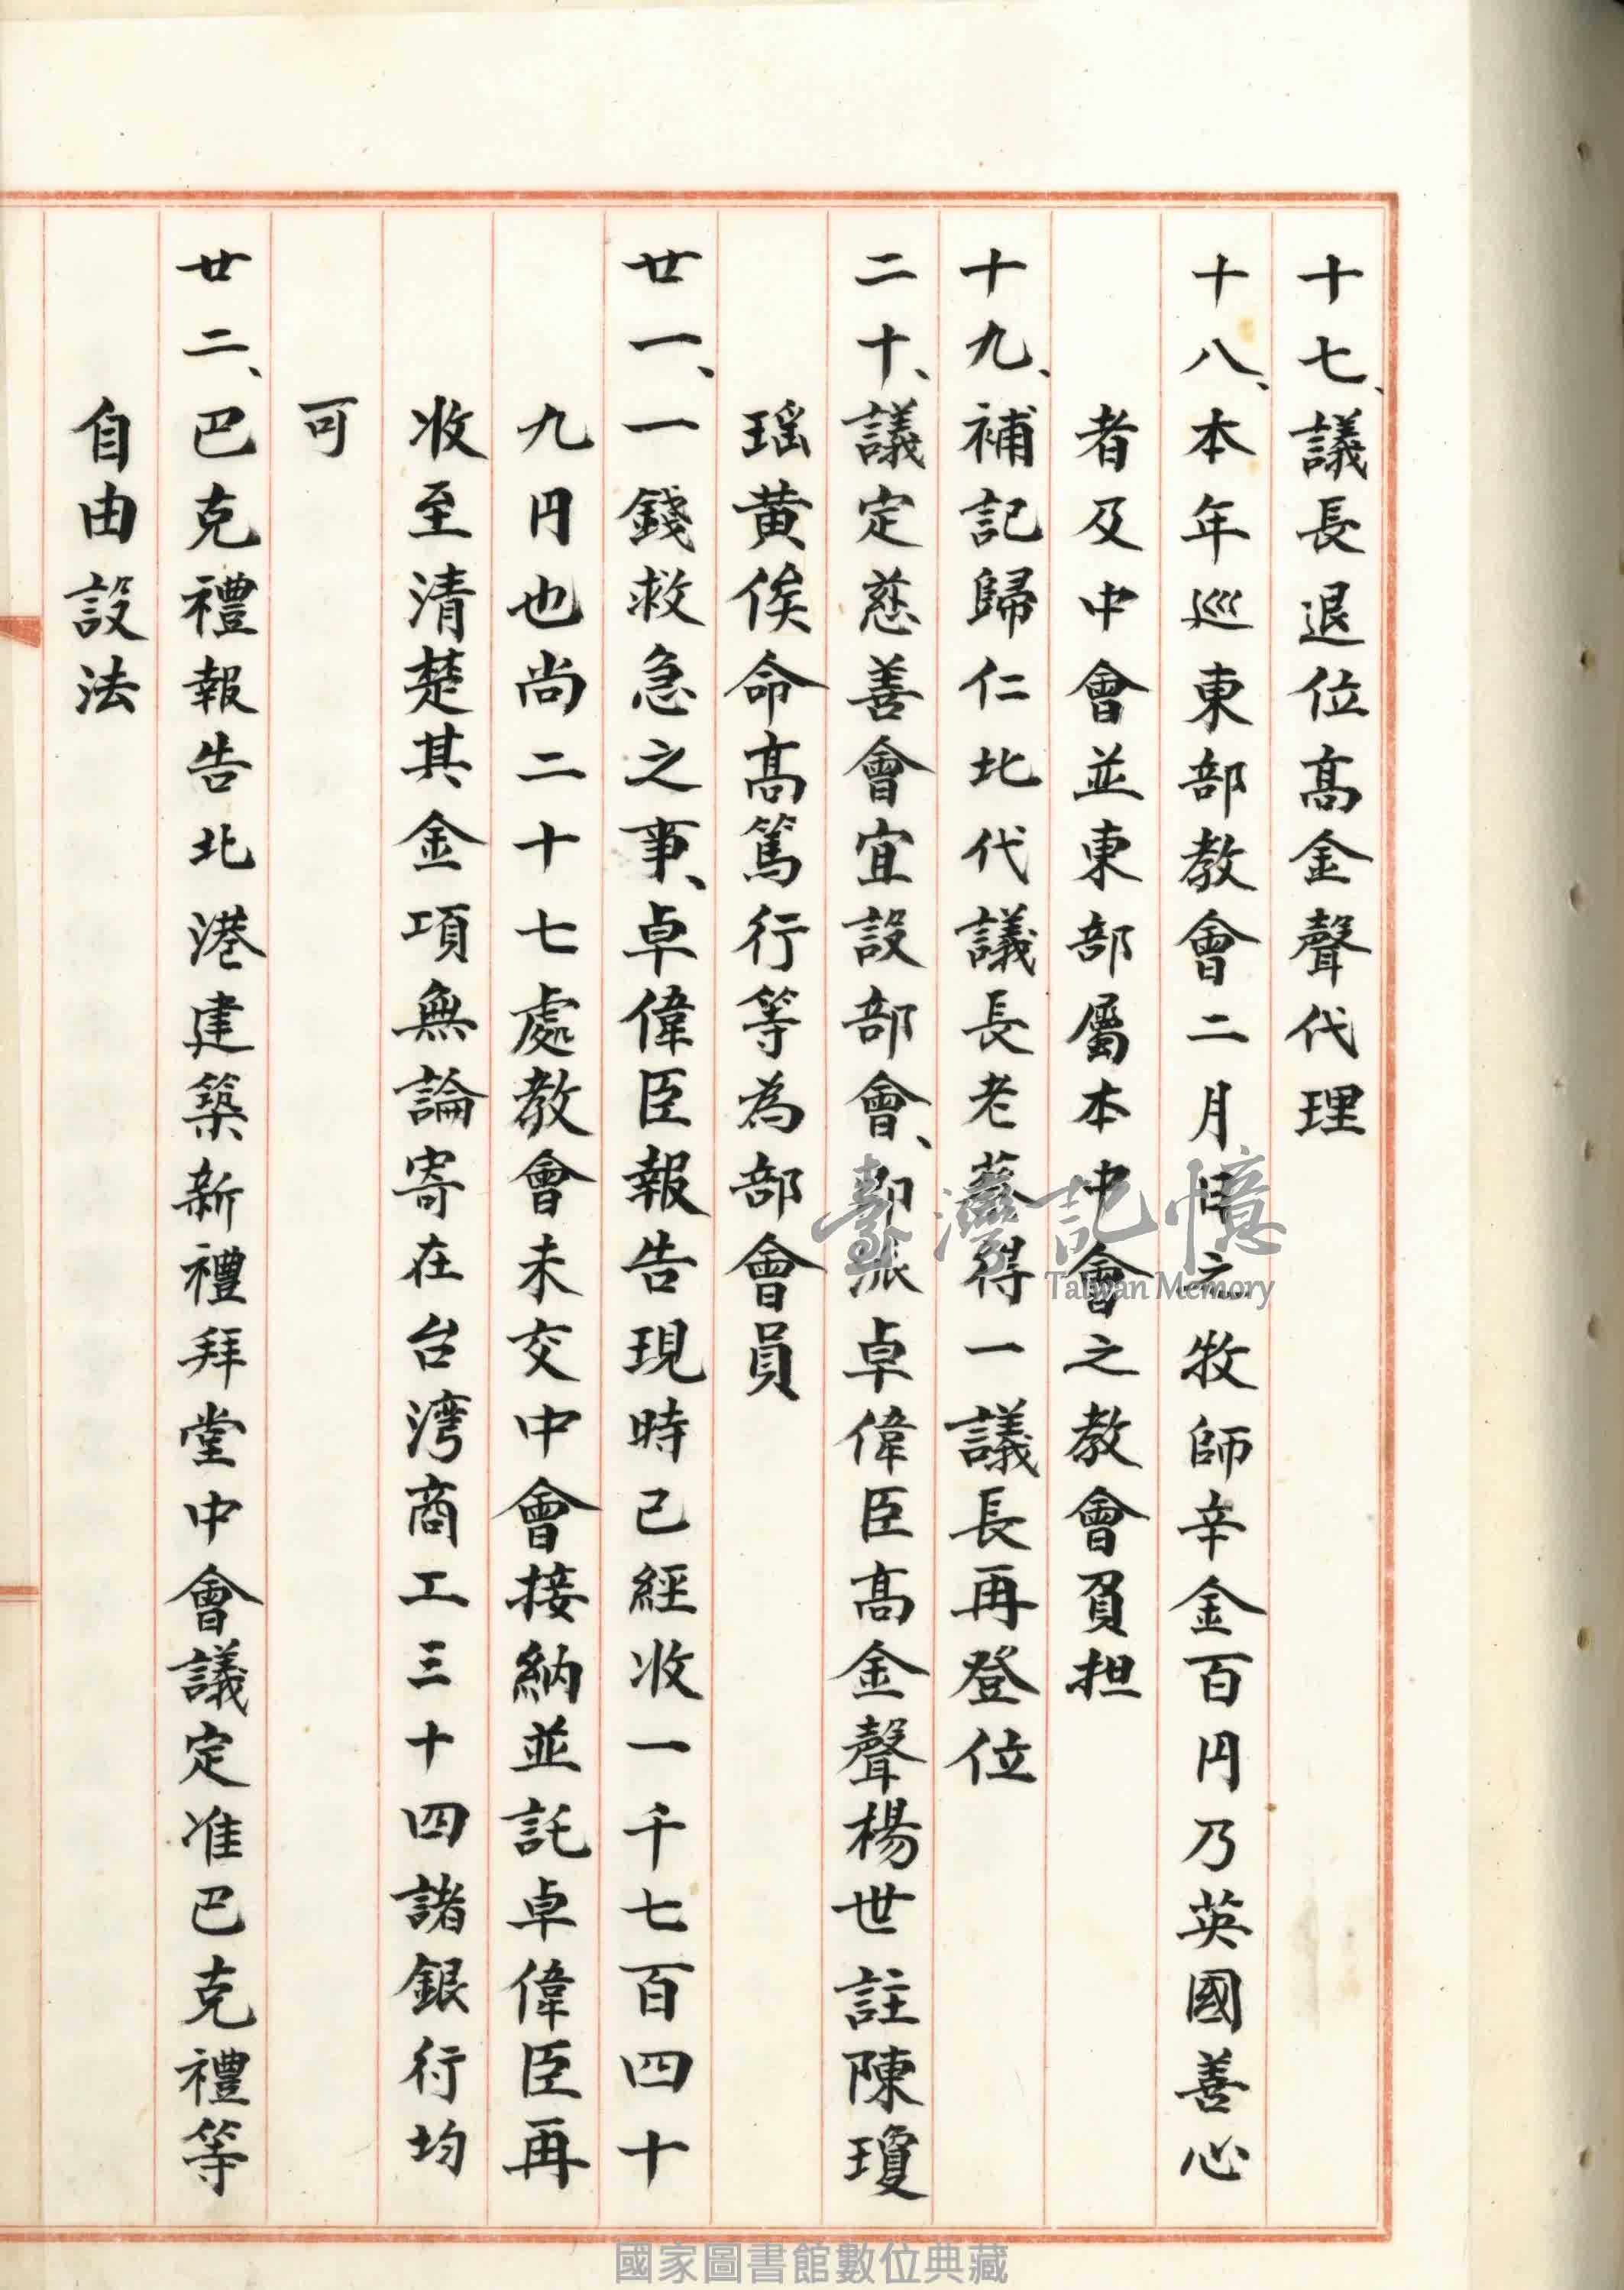 十七、議長退位高金聲代理
十八、本年巡東部教會二月日之牧師辛金百円乃英國善心
者及中會並東部屬本中會之教會負担
十九、補記歸仁北代議長老蔡得一議長再登位
二十、議定慈善會宜設部會、即派卓偉臣高金聲楊世註陳瓊
瑶黄俟命高篤行等為部會員
廿一、一錢救急之事、卓偉臣報告現時已經收一千七百四十
九円也尚二十七處教會未交中會接納並託卓偉臣再
收至清楚其金項無論寄在台湾商工三十四諸銀行均
可
廿二、巴克禮報告北港建築新禮拜堂中會議定准巴克禮等
自由設法
臺灣記憶
Taiwan Memory
國家圖書館數位典藏